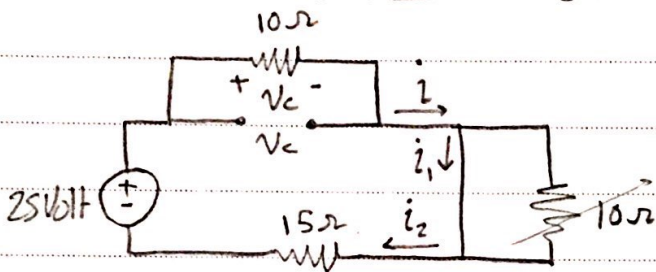 10Ω
+ Vc -
Vc
i
i₁
25Volt
+
-
15Ω
i₂
10Ω